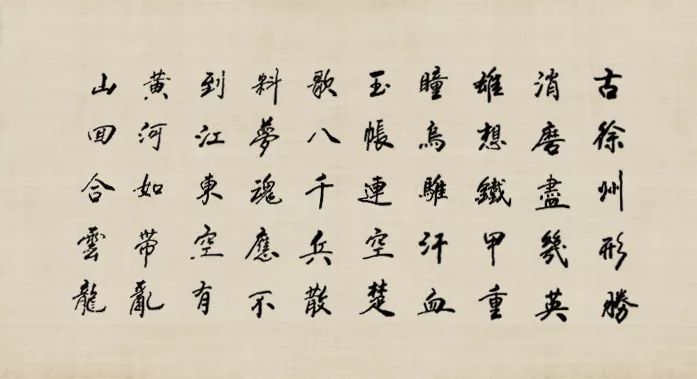 古徐州形勝
消磨盡幾英
雄想鐵甲重
瞳烏騅汗血
玉帳連空楚
歌八千兵散
料夢魂應不
到江東空有
黃河如帶亂
山回合雲龍